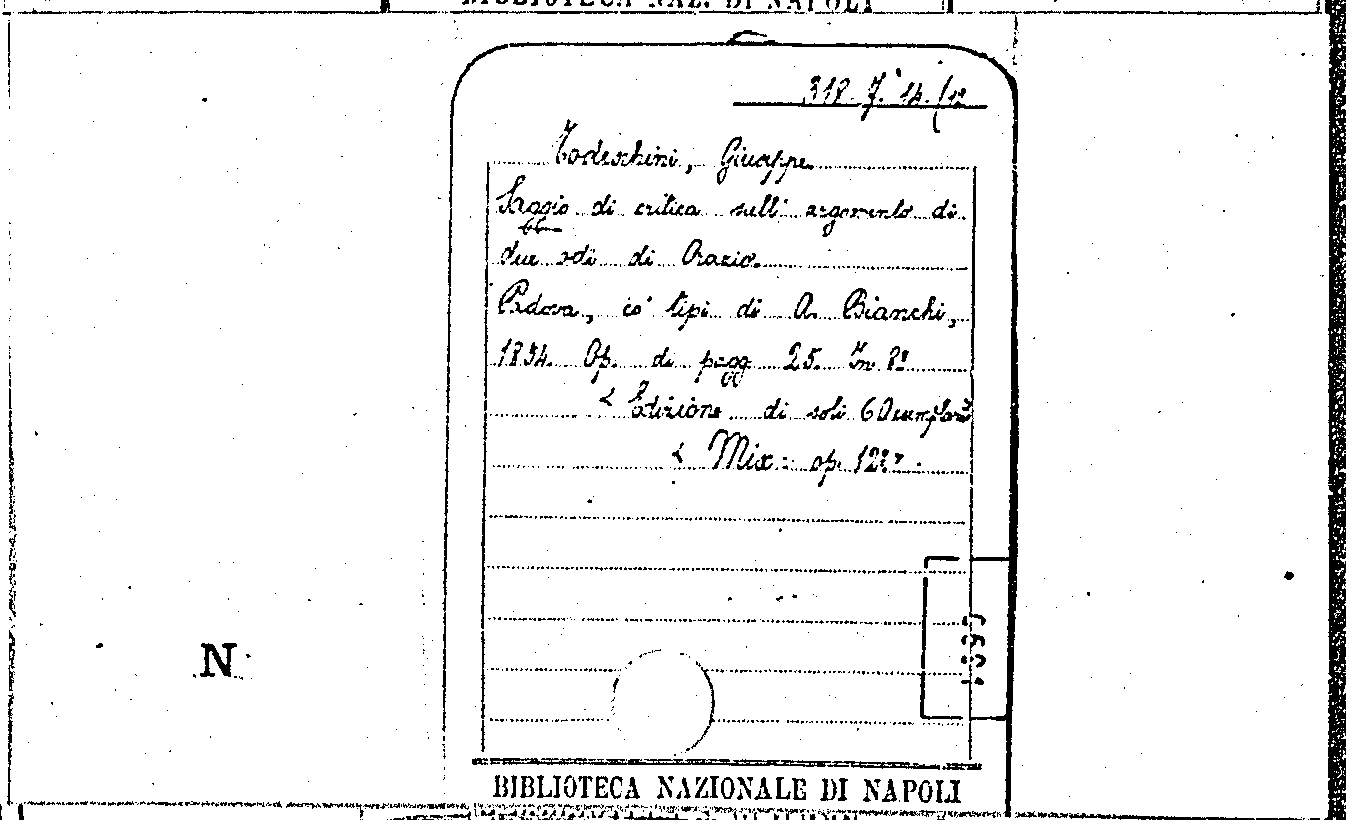 BIBLIOTECA NAZ. DI NAPOLI
318. 7. 14. (12
Todeschini, Giuseppe.
Saggio di critica sull' argomento di
due odi di Orazio.
Padova, co' tipi di A. Bianchi,
1834. Op. di pagg. 25. In 8º
< Edizione di soli 60 esemplari
< Mix: op. 128
N
BIBLIOTECA NAZIONALE DI NAPOLI